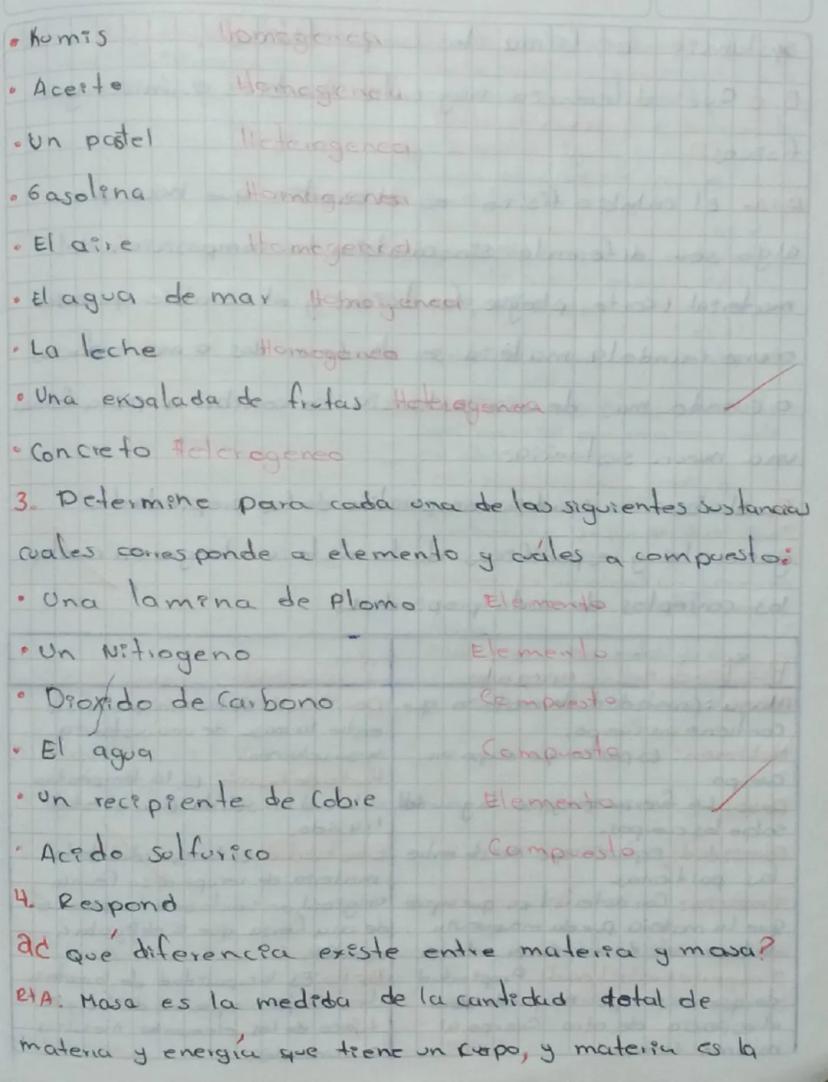 • Kumis Homogenea
• Aceite Homogenea
• Un pastel Heterogenea
• Gasolina Homogenea
• El aire Homogenea
• El agua de mar Homogenea
• La leche Homogenea
• Una ensalada de frutas Hetrogenea
• Concreto Heterogeneo
3. Determine para cada una de las siguientes sustancias
cuales corresponde a elemento y cuáles a compuesto:
• Una lamina de Plomo Elemento
• Un Nitrogeno Elemento
• Dioxido de Carbono Compuesto
• El agua Compuesto
• Un recipiente de Cobre Elemento
• Acido sulfurico Compuesto
4. Respond
a¿ Qué diferencia existe entre materia y masa?
RtA: Masa es la medida de la cantidad total de
materia y energía que tiene un curpo, y materia es la